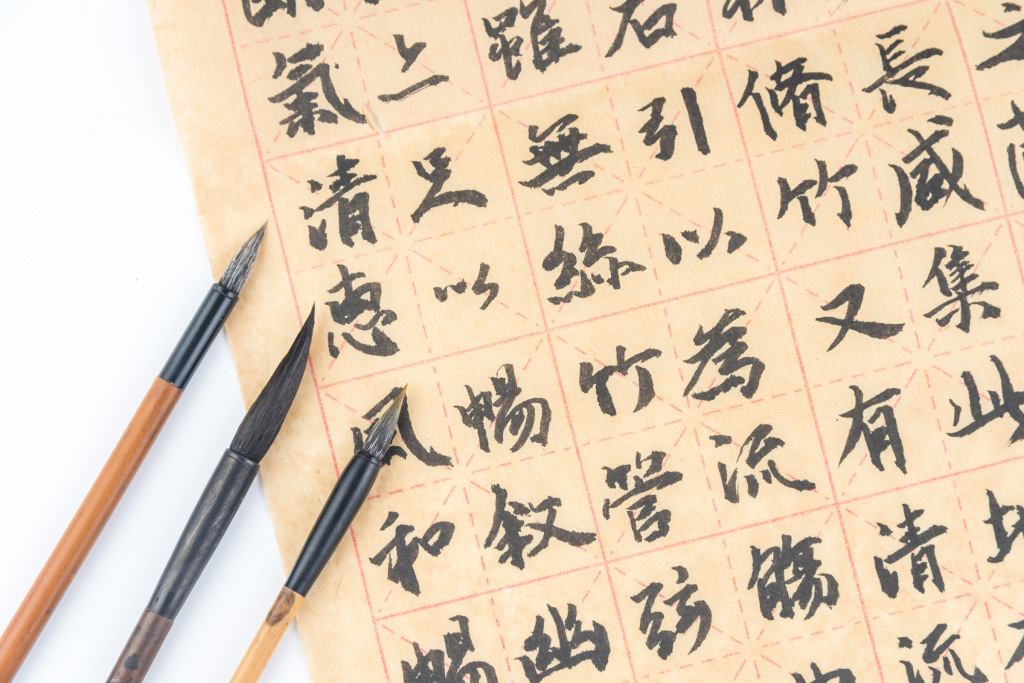 長咸集此地
脩竹又有清流
右引以為流觴
雖無絲竹管弦
亦足以暢敘幽
氣清惠風和暢